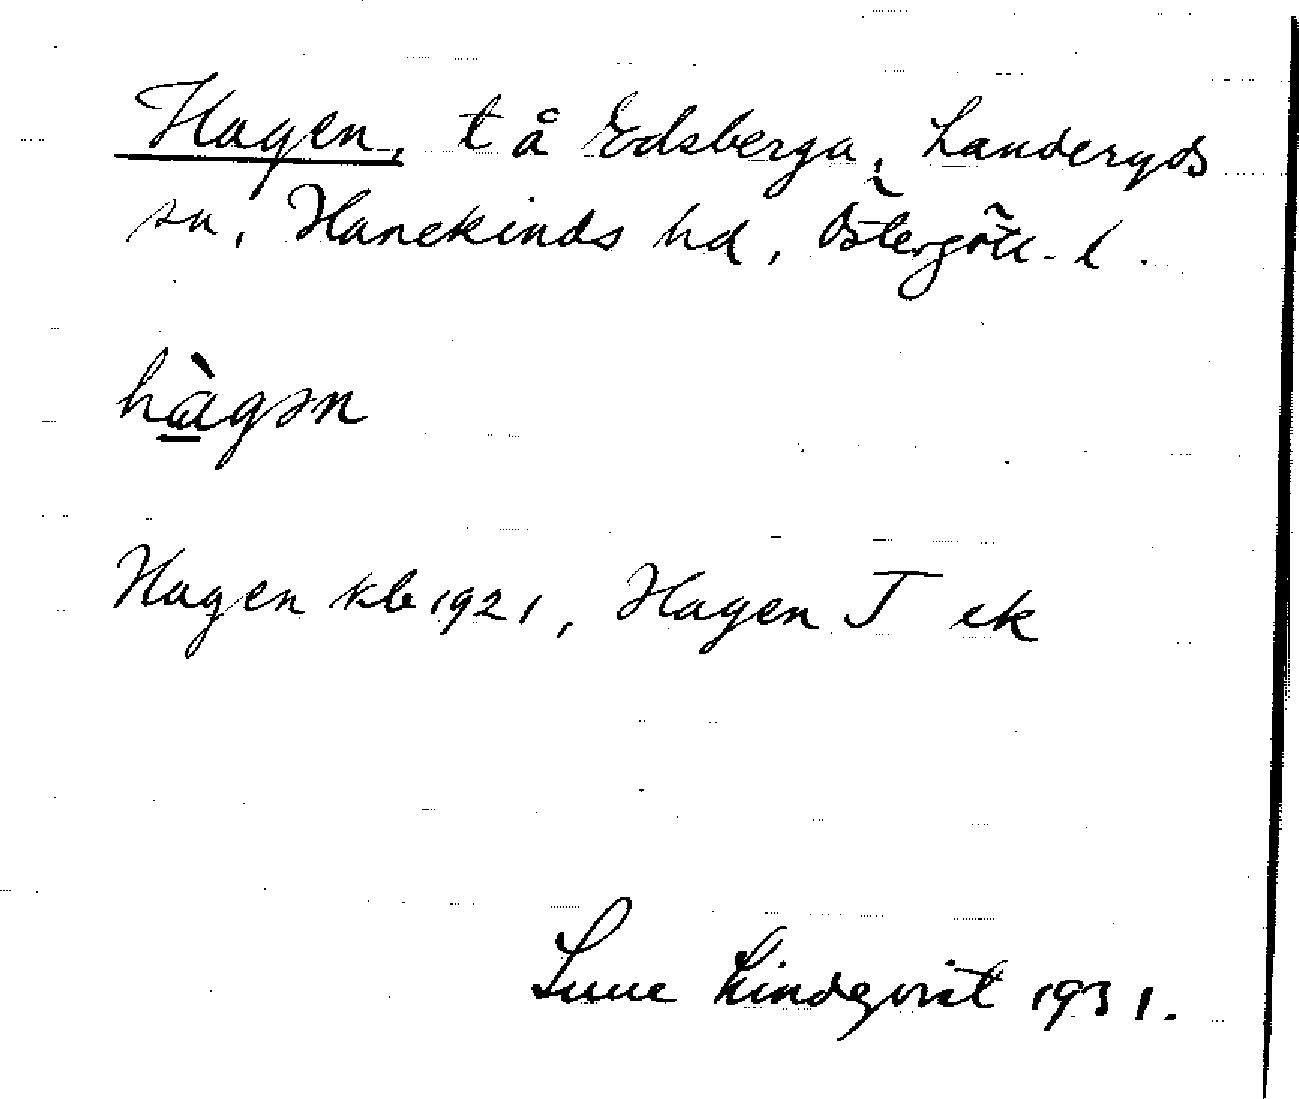 Hagen, t å Edsberga, Landeryds
sn, Hanekinds hd, Östergötl. l.
hàgən
Hagen kb 1921, Hagen T ek
Sune Lindqvist 1931.